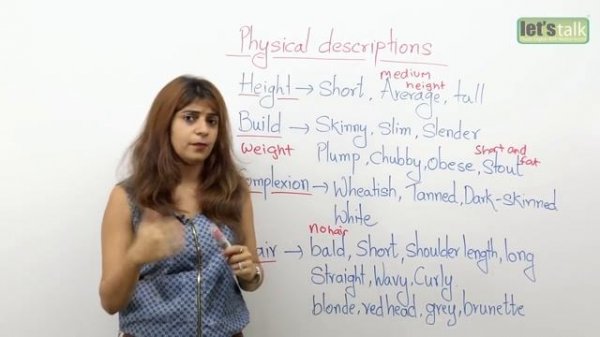 let's talk
Physical descriptions
medium
height
Height → Short, Average, tall
Build → Skinny, Slim, Slender
Short and
fat
Weight Plump, Chubby, Obese, Stout
omplexion → Wheatish, Tanned, Dark-skinned
White
no hair
air → bald, Short, shoulder length, long
Straight, Wavy, Curly
blonde, red head, grey, brunette